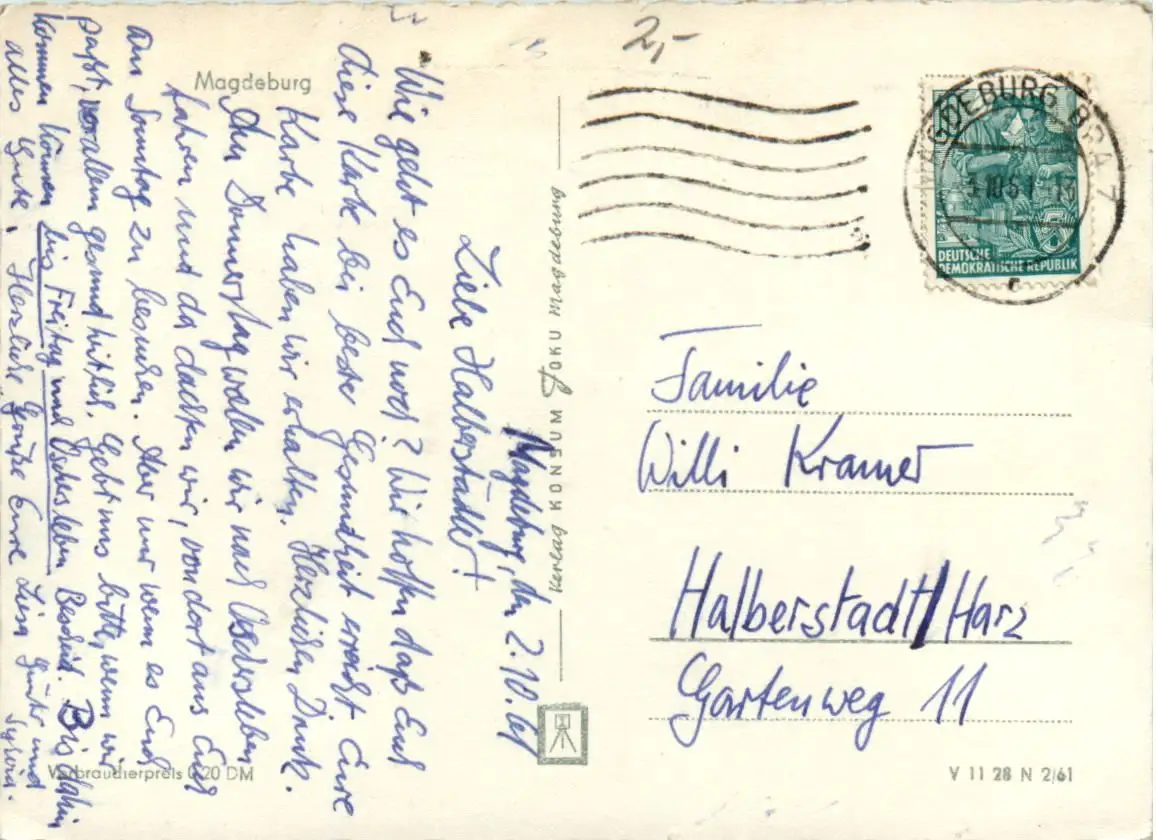 2,-
Magdeburg
Magdeburg, den 2.10.61
Liebe Halberstädter!
Wie geht es Euch noch? Wir hoffen daß Euch
diese Karte bei bester Gesundheit erreicht. Eure
Karte haben wir erhalten. Herzlichen Dank.
Am Donnerstag wollen wir nach Oschersleben
fahren und da dachten wir, von dort aus Euch
am Sonntag zu besuchen. Aber nur wenn es Euch
paßt, vor allem gesundheitlich. Gebt uns bitte, wenn wir
kommen können bis Freitag nach Oschersleben Bescheid. Bis dahin
alles Gute! Herzliche Grüße Eure Liesa, Günter und
Sylvia.
Verbraucherpreis 0,20 DM
VERLAG KONSUM FOKU MAGDEBURG
MAGDEBURG BPA 7
DEUTSCHE
DEMOKRATISCHE REPUBLIK
Familie
Willi Kramer
Halberstadt/Harz
Gartenweg 11
V 11 28 N 2/61